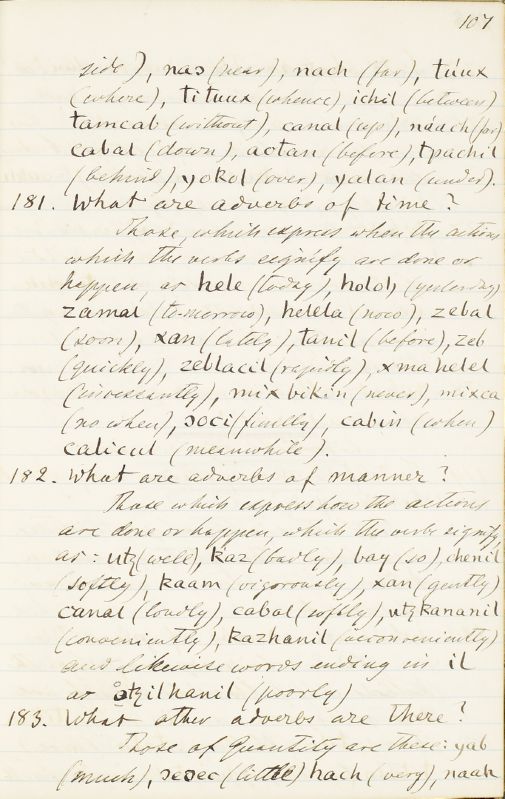 107
side), nao (near), nach (far), túux
(where), tituux (whence), ichil (between)
tamcab (without), canal (up), náach (far)
cabal (down), actan (before), tpachil
(behind), yokol (over), yalan (under).
181. What are adverbs of time?
Those, which express when the actions
which the verbs signify are done or
happen, as hele (today), holoh (yesterday)
zamal (to-morrow), helela (now), zebal
(soon), xan (lately), tanil (before), zeb
(quickly), zeblacil (rapidly), xmahelel
(incessantly), mixbikin (never), mixca
(no when), ɔoci (finally), cabin (when)
calicul (meanwhile).
182. What are adverbs of manner?
Those which express how the actions
are done or happen, which the verbs signify,
as: utz (well), kaz (badly), bay (so), chenil
(softly), kaam (vigorously), xan (gently)
canal (loudly), cabal (softly), utzkananil
(conveniently), kazhanil (inconveniently)
and likewise words ending in il
as otzilhanil (poorly)
183. What other adverbs are there?
Those of Quantity are these: yab
(much), ɔeɔec (little) hach (very), naak